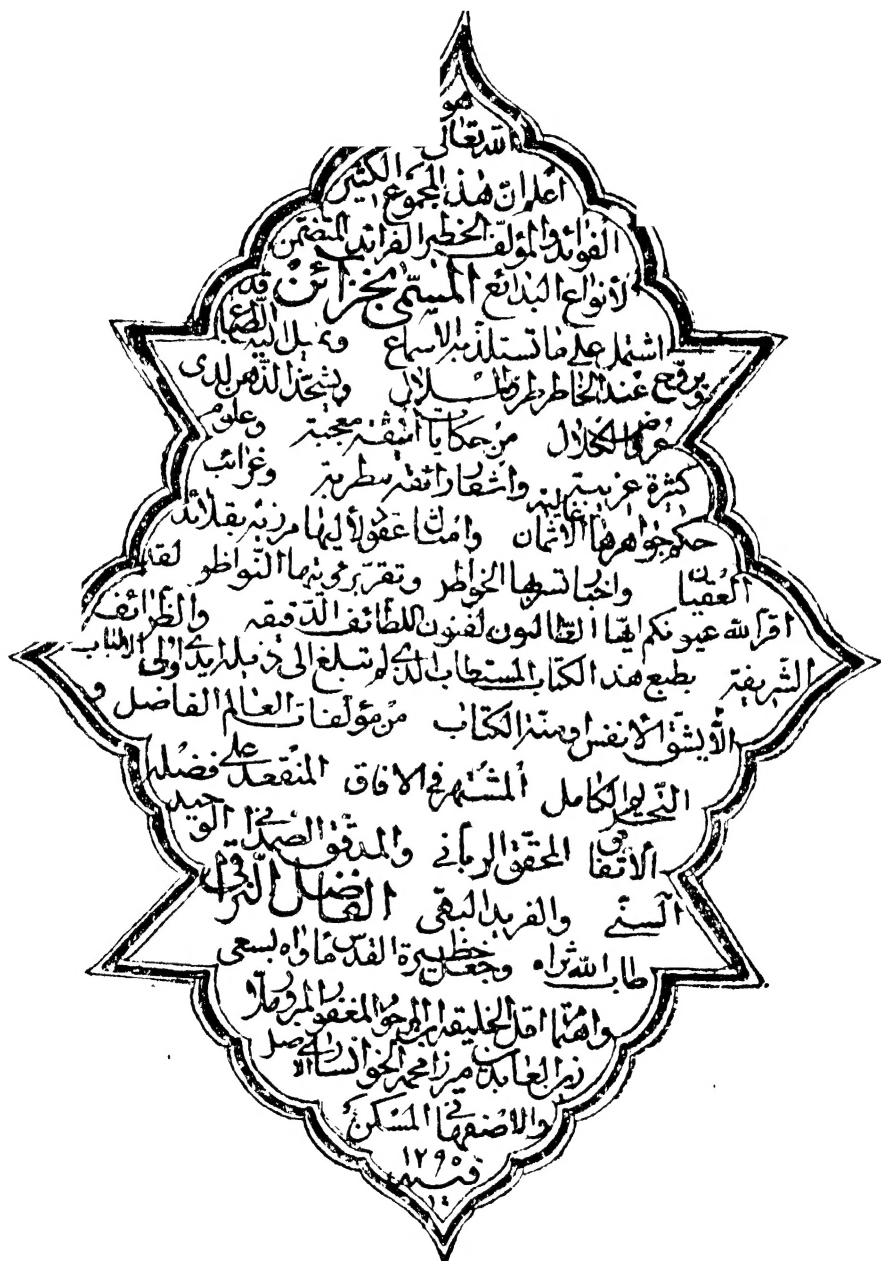 هو
الله تعالى
اعلم انّ هذا المجموع الكثير
الفوائد والمؤلّف الخطير الفرائد المتضمّن
لأنواع البدائع المسمّى بخزائن قد
اشتمل على ما تستلذّ به الاسماع ويميل اليه الطّباع
ويروّح عند الخاطر الملال ويشحّذ الذّهن لدى
عروض الكلال من حكايات انيقة معجبة وعلوم
كثيرة غريبة واشعار رائقة مطربة وغرائب
حكم جواهرها غالية الاثمان وامثال عقود لأليها مزرية بقلائد
العقيان واخبار تسرّ بها الخواطر وتقرّ برؤيتها النّواظر لقد
اقرّ الله عيونكم ايّها الطّالبون لفنون اللطائف الدّقيقة والظّرائف
الشّريفة بطبع هذا الكتاب المستطاب الذي لم تبلغ الى ذيله ايدي اولى الالباب
الّا بشقّ الانفس وهذه الكتاب من مؤلّفات العالم الفاضل و
النّحرير الكامل المشتهر في الافاق المنقعد على فضله
الاتّفاق المحقّق الرباني والمدقّق الصمداني الوحيد
السنّي والفريد البهيّ الفاضل النّراقي
طاب الله ثراه وجعل حظيرة القدس مأواه بسعى
واهتمام اقلّ الخليقة ابن المرحوم المغفور المبرور ملّا
زين العابدين ميرزا محمد الخوانساري الاصل
والاصفهاني المسكن
في سنه ١٢٩٥